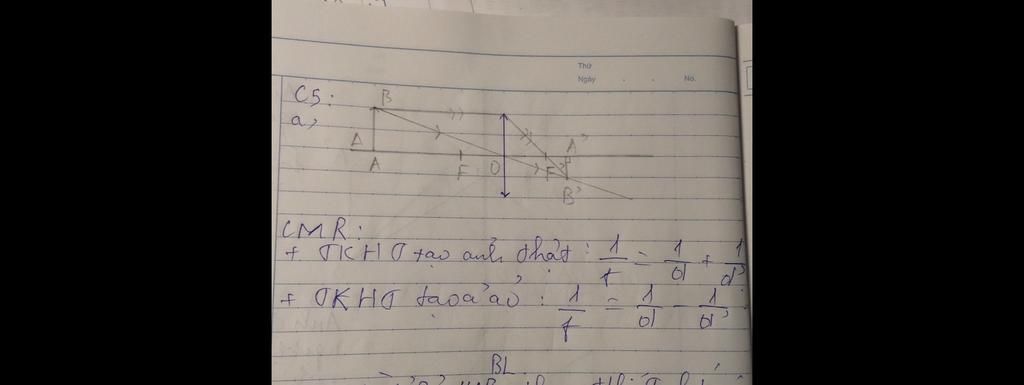 Thứ
Ngày . . No.
C5:
a,
B
Δ A'
A F O F'
B'
CMR:
+ TKHT tạo ảnh thật: 1/f = 1/d + 1/d'
+ TKHT tạo ả' ảo: 1/f = 1/d - 1/d'
BL